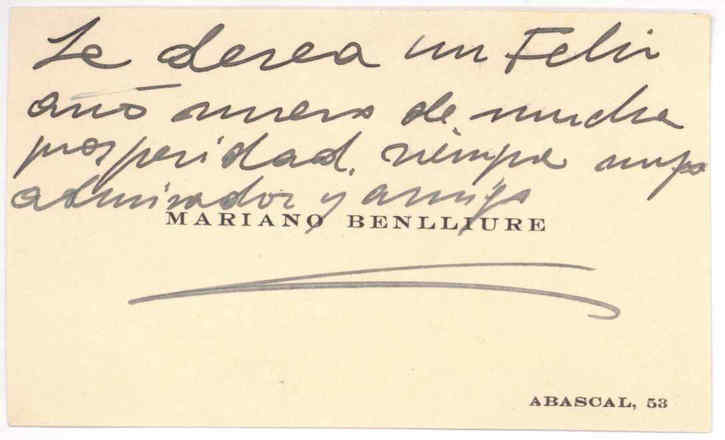 Le desea un Feliz
año nuevo de mucha
prosperidad, siempre suyo
admirador y amigo
MARIANO BENLLIURE
ABASCAL, 53